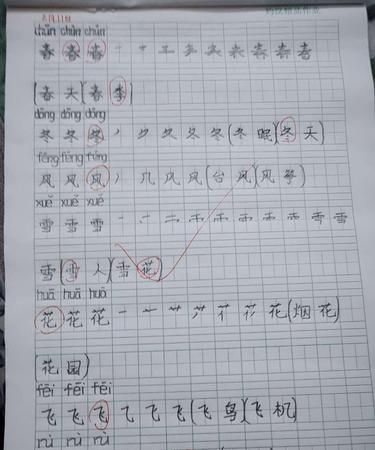 chūn chūn chūn
春 春 春 一 二 三 声 夫 夫 春 春 春
(春 天)(春 季)
dōng dōng dōng
冬 冬 冬 丿 夕 夂 冬 冬 (冬 眠)(冬 天)
fēng fēng fēng
风 风 风 丿 几 风 风 (台 风)(风 筝)
xuě xuě xuě
雪 雪 雪
雪 (雪 人)(雪 花)
huā huā huā
花 花 花 一 十 艹 花 (烟 花)
(花 园)
fēi fēi fēi
飞 飞 飞 乁 飞 飞 (飞 鸟)(飞 机)
rù rù rù